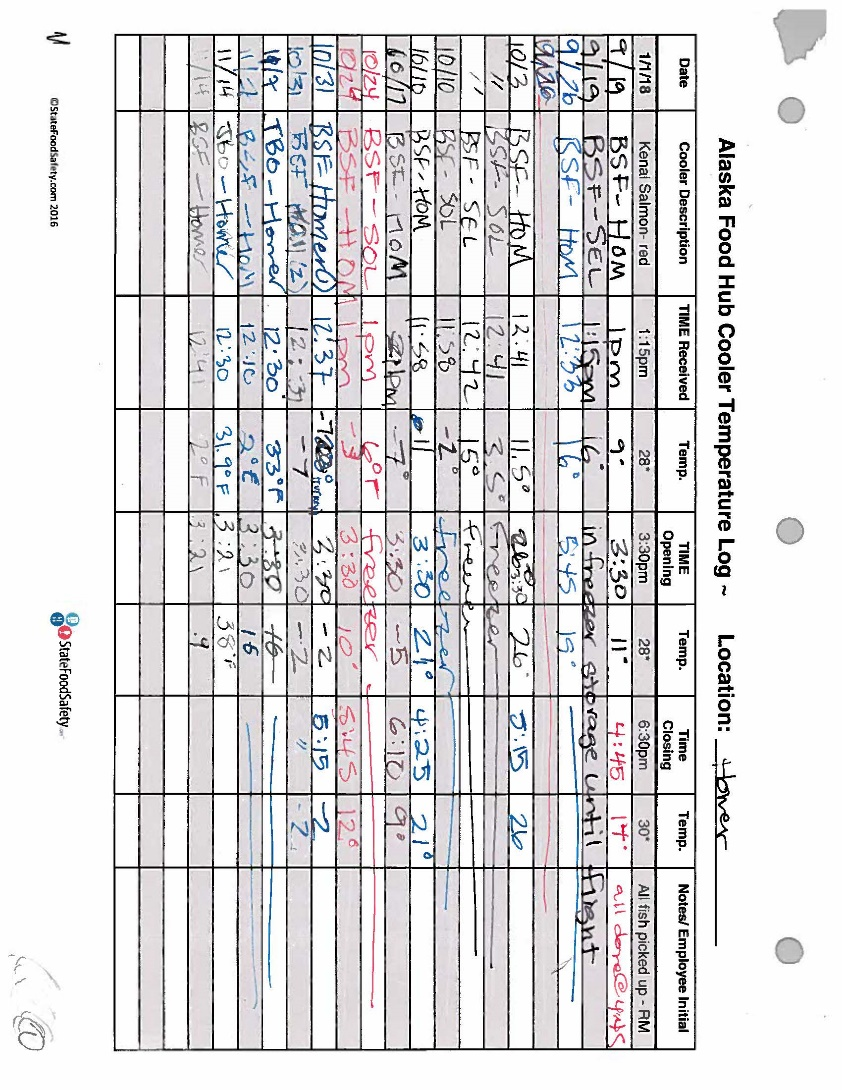 Alaska Food Hub Cooler Temperature Log ~ Location: Homer
Date Cooler Description TIME Received Temp. TIME Opening Temp. Time Closing Temp. Notes/ Employee Initial
1/1/18 Kenai Salmon- red 1:15pm 28° 3:30pm 28° 6:30pm 30° All fish picked up - RM
9/19 BSF-HOM 1pm 9° 3:30 11° 4:45 17° all done@4:45
9/19 BSF-SEL 1:15pm 16° in freezer storage until flight
9/26 BSF-HOM 12:33 16° 5:45 19°
9/26
10/3 BSF-HOM 12:41 11.5° 3:30 26° 5:15 26
" BSF-SOL 12:41 3.5° freezer
" BSF-SEL 12:42 15° freezer
10/10 BSF-SOL 11:58 -2° freezer
10/10 BSF-HOM 11:58 11 3:30 21° 4:25 21°
10/17 BSF-HOM 2pm -7° 3:30 -5 6:10 9°
10/24 BSF-SOL 1pm 6°F freezer
10/24 BSF-HOM 1pm -3 3:30 10° 5:45 12°
10/31 BSF-Homer(1) 12:37 3:30 -2 5:15 -2
10/31 BSF HOM (2) 12:37 -7 3:30 -2 " -2
11/7 TBO-Homer 12:30 33°F 3:30 16
11/7 BSF-HOM 12:10 2°F 3:30 16
11/14 TBO-Homer 12:30 31.9°F 3:21 38°F
11/14 BSF-Homer 12:41 2°F 3:21 .9
©StateFoodSafety.com 2016
StateFoodSafety